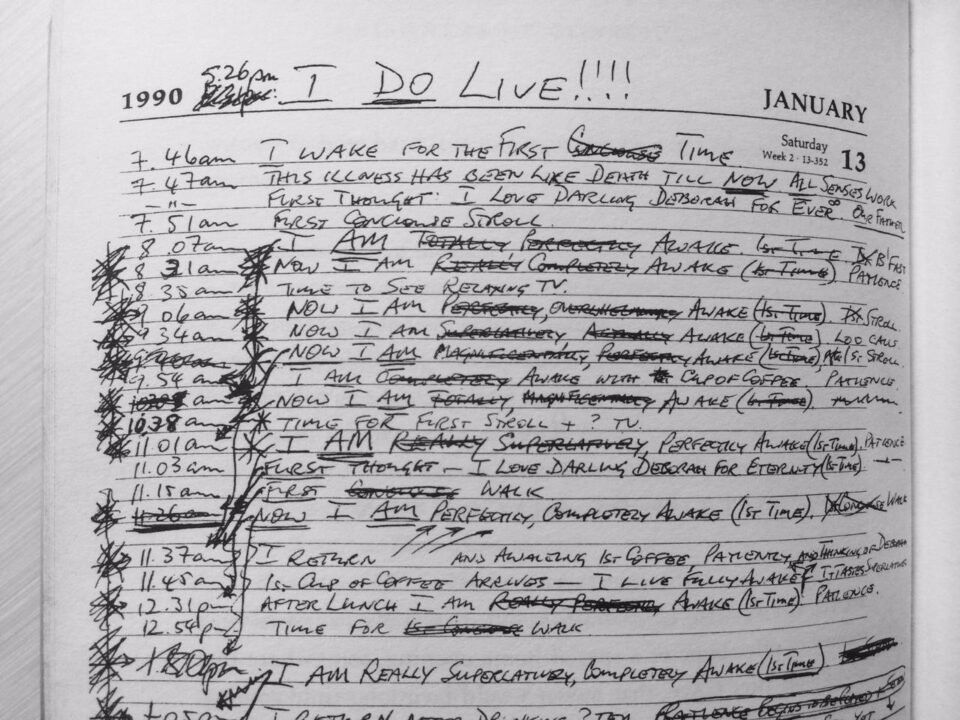 5.26pm I DO LIVE!!!!
1990 JANUARY
Saturday
Week 2 · 13-352 13
7.46am I WAKE FOR THE FIRST CONCIOUSE TIME.
7.47am THIS ILLNESS HAS BEEN LIKE DEATH TILL NOW ALL SENSES WORK.
–"– FIRST THOUGHT: I LOVE DARLING DEBORAH FOR EVER OUR FATHER
7.51am FIRST CONCIOUSE STROLL.
8.07am I AM TOTALLY PERFECTLY AWAKE. 1ST TIME B'FAST
8 31am NOW I AM REALLY COMPLETELY AWAKE (1ST TIME) PATIENCE
8.35am TIME TO SEE RELAXING TV.
9 06am NOW I AM PERFECTLY, OVERWHELMINGLY AWAKE (1ST TIME). STROLL
9 34am NOW I AM SUPERLATIVELY, ACTUALLY AWAKE (1ST TIME). LOO CALL
NOW I AM MAGNIFICENTLY, PERFECTLY AWAKE (1ST TIME), 1ST STROLL
9.54am I AM COMPLETELY AWAKE WITH CUP OF COFFEE. PATIENCE.
am NOW I AM TOTALLY MAGNIFICENTLY AWAKE (1ST TIME).
10.38am TIME FOR FIRST STROLL + ? TV.
11.01am I AM REALLY SUPERLATIVELY, PERFECTLY AWAKE (1ST TIME). PATIENCE
11.03am FIRST THOUGHT – I LOVE DARLING DEBORAH FOR ETERNITY (1ST TIME).
11.15am FIRST CONCIOUSE WALK
11.26am NOW I AM PERFECTLY, COMPLETELY AWAKE (1ST TIME). WALK
11.37am I RETURN AND AWAITING 1ST COFFEE, PATIENTLY, AND THINKING OF DEBORAH
11.45am 1ST CUP OF COFFEE ARRIVES – I LIVE FULLY AWAKE IT TASTES SUPERLATIVE
12.31pm AFTER LUNCH I AM REALLY PERFECTLY AWAKE (1ST TIME). PATIENCE.
12.54pm TIME FOR 1ST CONCIOUSE WALK
I AM REALLY SUPERLATIVELY, COMPLETELY AWAKE (1ST TIME)
I RETURN AFTER